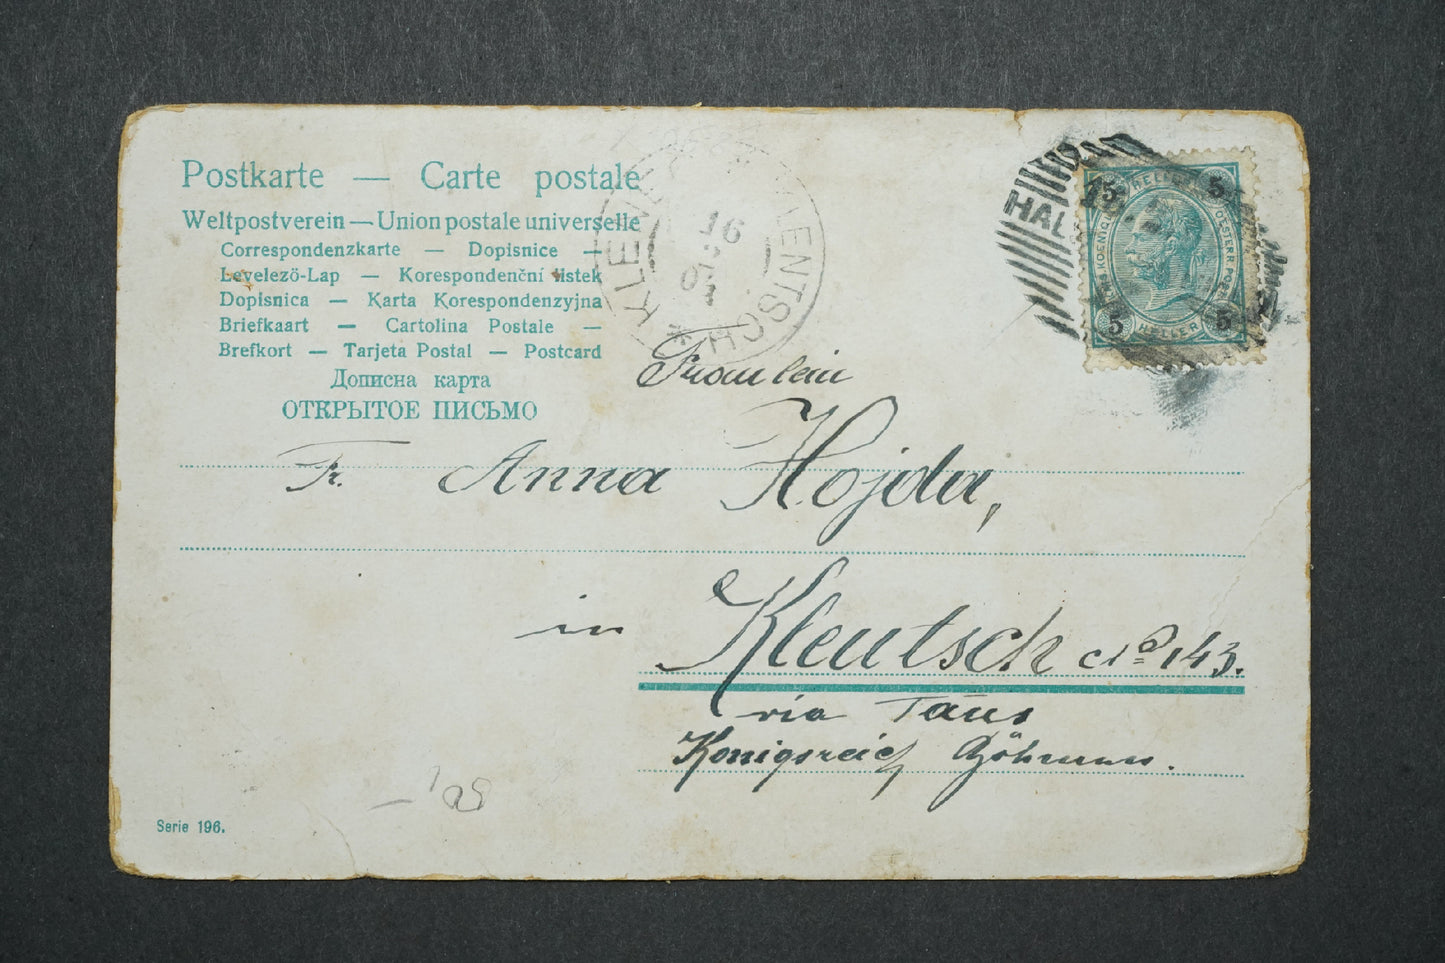 Postkarte — Carte postale
Weltpostverein — Union postale universelle
Correspondenzkarte — Dopisnice —
Levelező-Lap — Korespondenční listek
Dopisnica — Karta Korespondenzyjna
Briefkaart — Cartolina Postale —
Brefkort — Tarjeta Postal — Postcard
Дописна карта
ОТКРЫТОЕ ПИСЬМО
KLENEČ KLENTSCH
16
HAL
5 HELLER 5
5 HELLER 5
Fräulein
Fr. Anna Hojda,
in Kleutsch 143.
via Taus
Königreich Böhmen.
Serie 196.